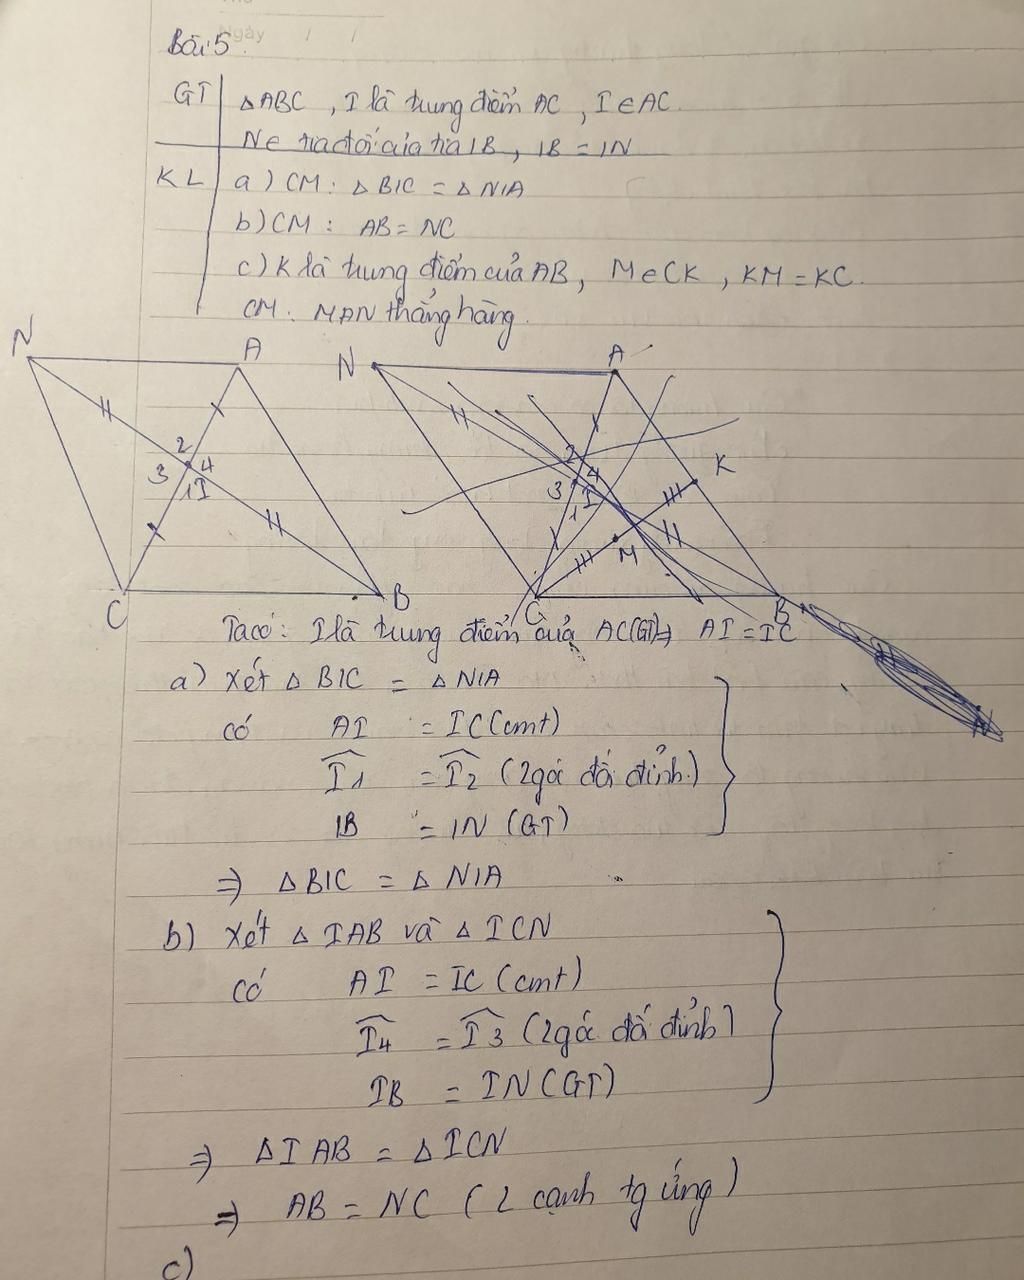 Ngày / /
Bài 5.
GT ΔABC , I là trung điểm AC , I ∈ AC.
N ∈ tia đối của tia IB , IB = IN
KL a) CM: Δ BIC = Δ NIA
b) CM : AB = NC
c) K là trung điểm của AB, M ∈ CK , KM = KC.
CM : MAN thẳng hàng.
N A N A
2 3 4 1 I 2 3 4 1 I K M
C B C B
N
Ta có: I là trung điểm của AC(GT) ⇒ AI = IC
a) Xét Δ BIC = Δ NIA
có AI = IC (cmt)
I1 = I2 (2 góc đối đỉnh.)
IB = IN (GT)
⇒ Δ BIC = Δ NIA
b) Xét Δ IAB và Δ ICN
có AI = IC (cmt)
I4 = I3 (2 góc đối đỉnh)
IB = IN (GT)
⇒ Δ IAB = Δ ICN
⇒ AB = NC ( 2 cạnh tg ứng )
c)